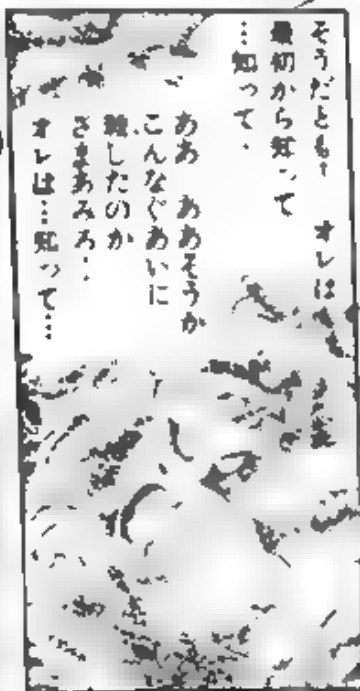 そうだとも! オレは
最初から知って
…知って・
ああ ああそうか
こんなぐあいに
殺したのか
ざまあみろ・・
オレは…知って…